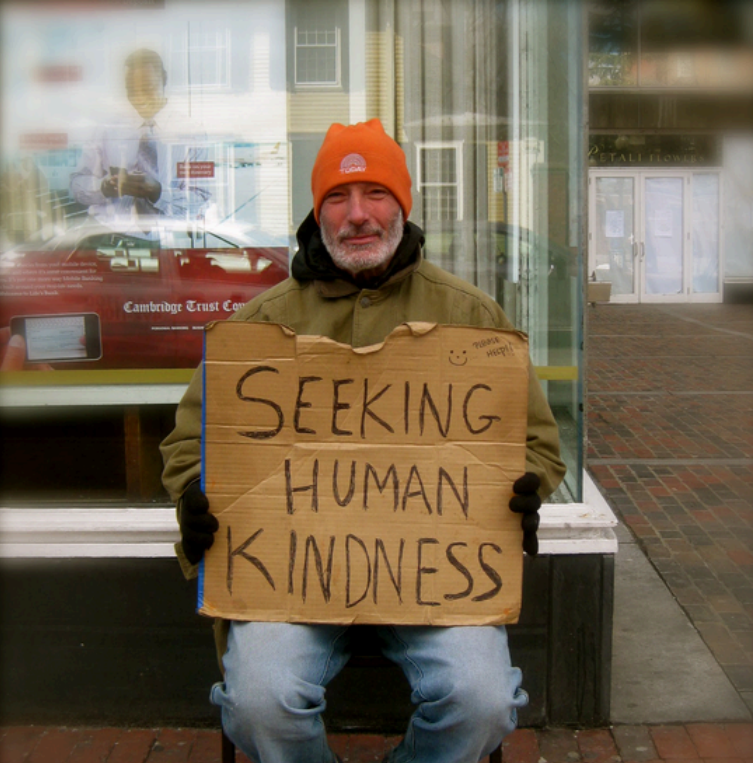 TODAY
Cambridge Trust Com
ETALI FLOWERS
PLEASE
HELP!!
SEEKING
HUMAN
KINDNESS